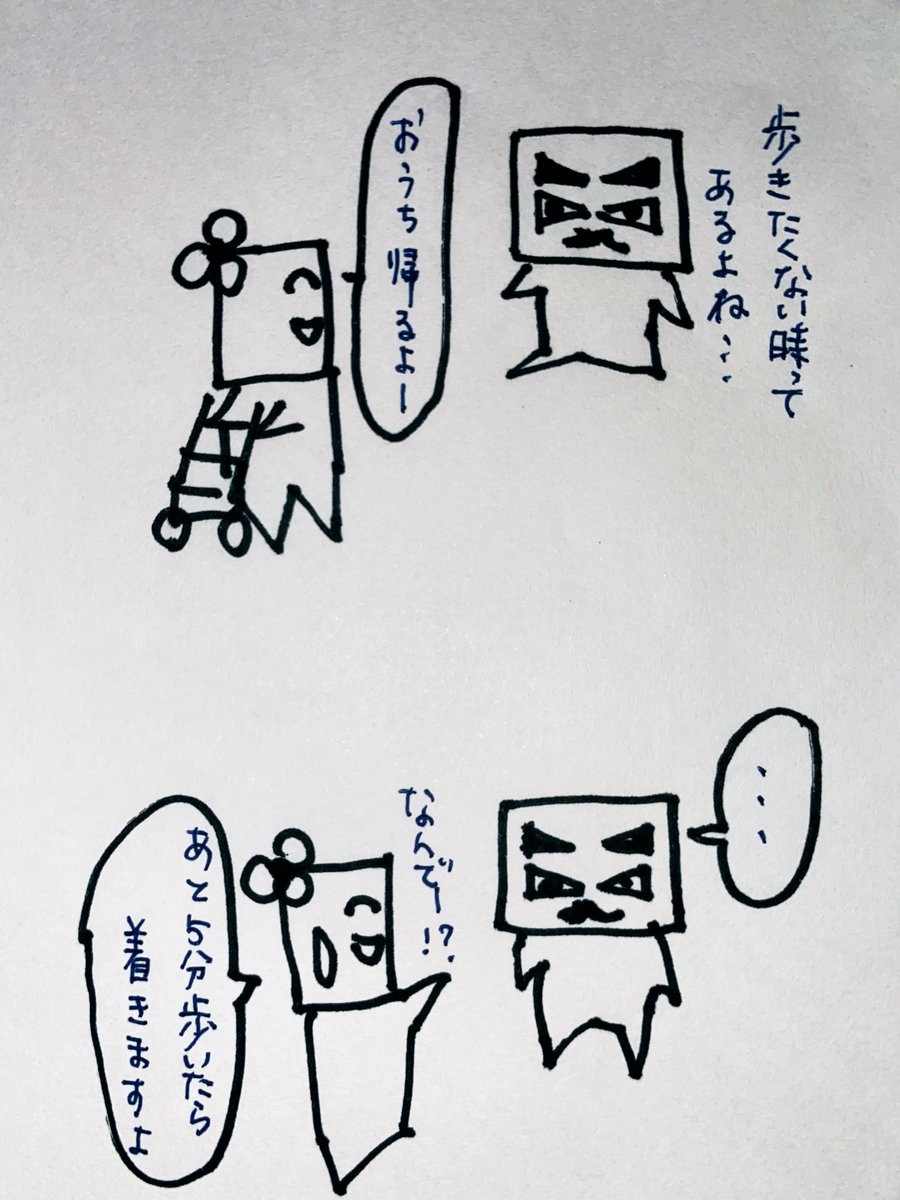 歩きたくない時って
あるよね・・・
おうち帰るよー
・・・
なんでー!?
あと5分歩いたら
着きますよ